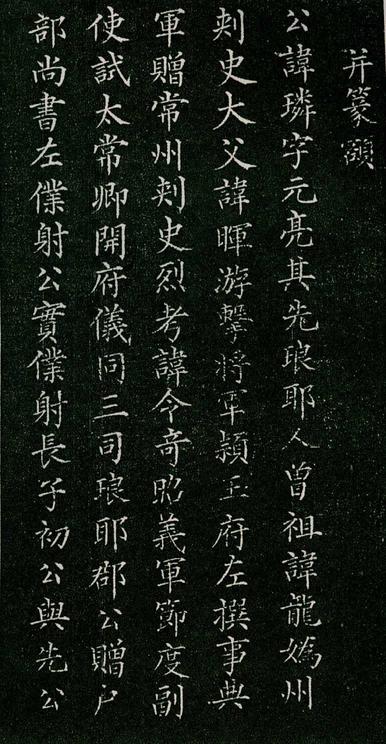 并篆額
公諱璘字元亮其先琅耶人曾祖諱龍嬀州
刾史大父諱暉游擊將軍潁王府左㩲事典
軍贈常州刾史烈考諱令奇昭義軍節度副
使試太常卿開府儀同三司琅耶郡公贈户
部尚書左僕射公實僕射長子初公與先公